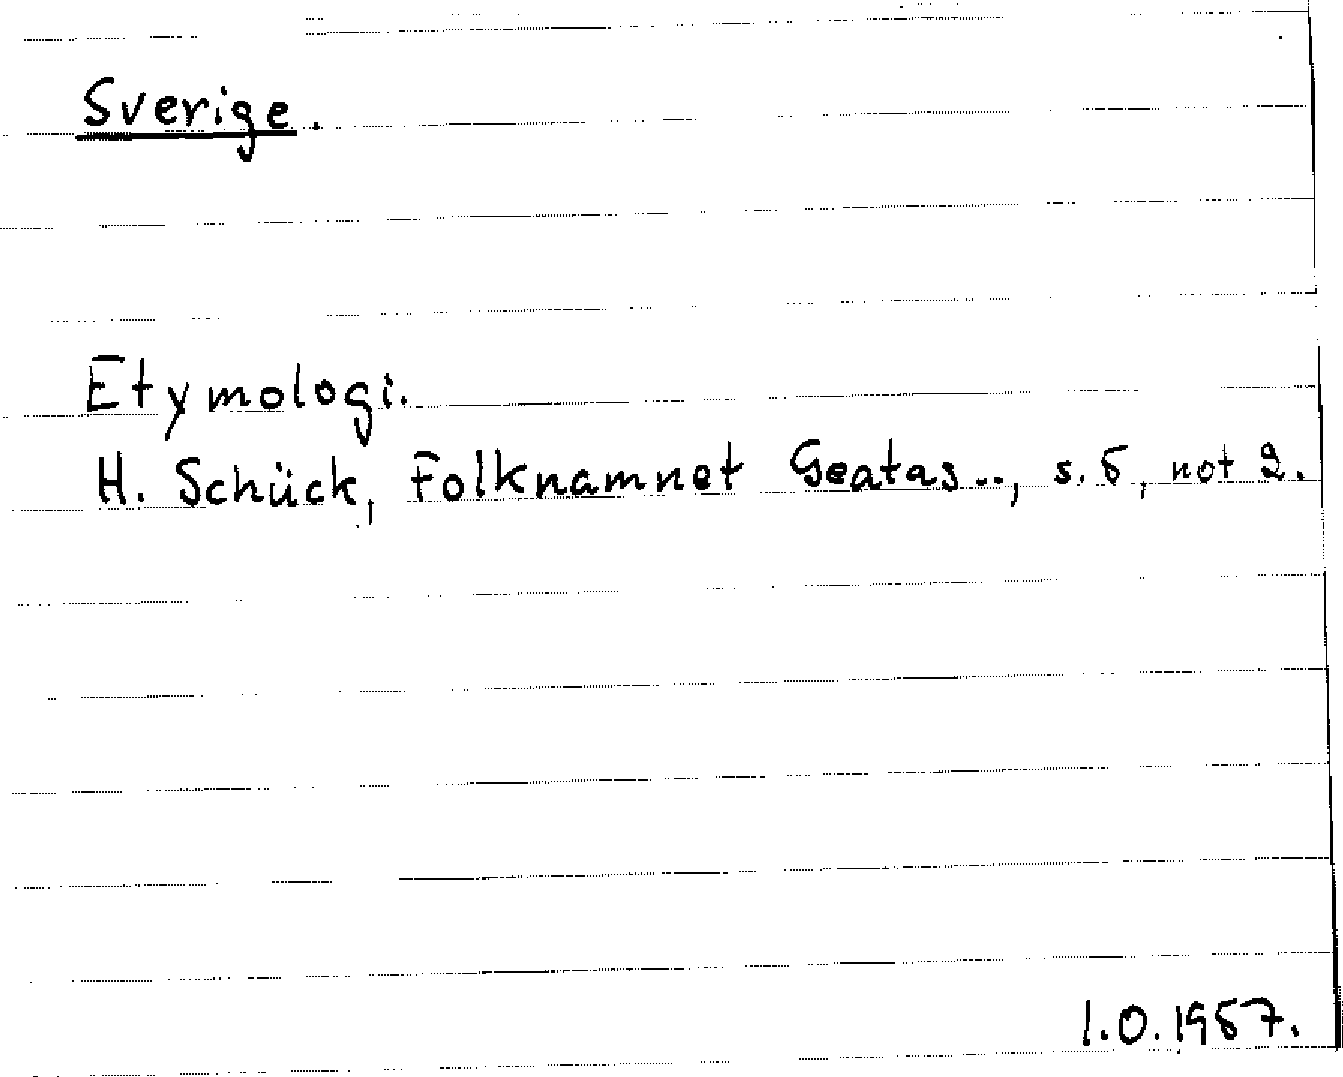 Sverige.
Etymologi.
H. Schück, Folknamnet Geatas..., s. 5, not 2.
I.O. 1957.